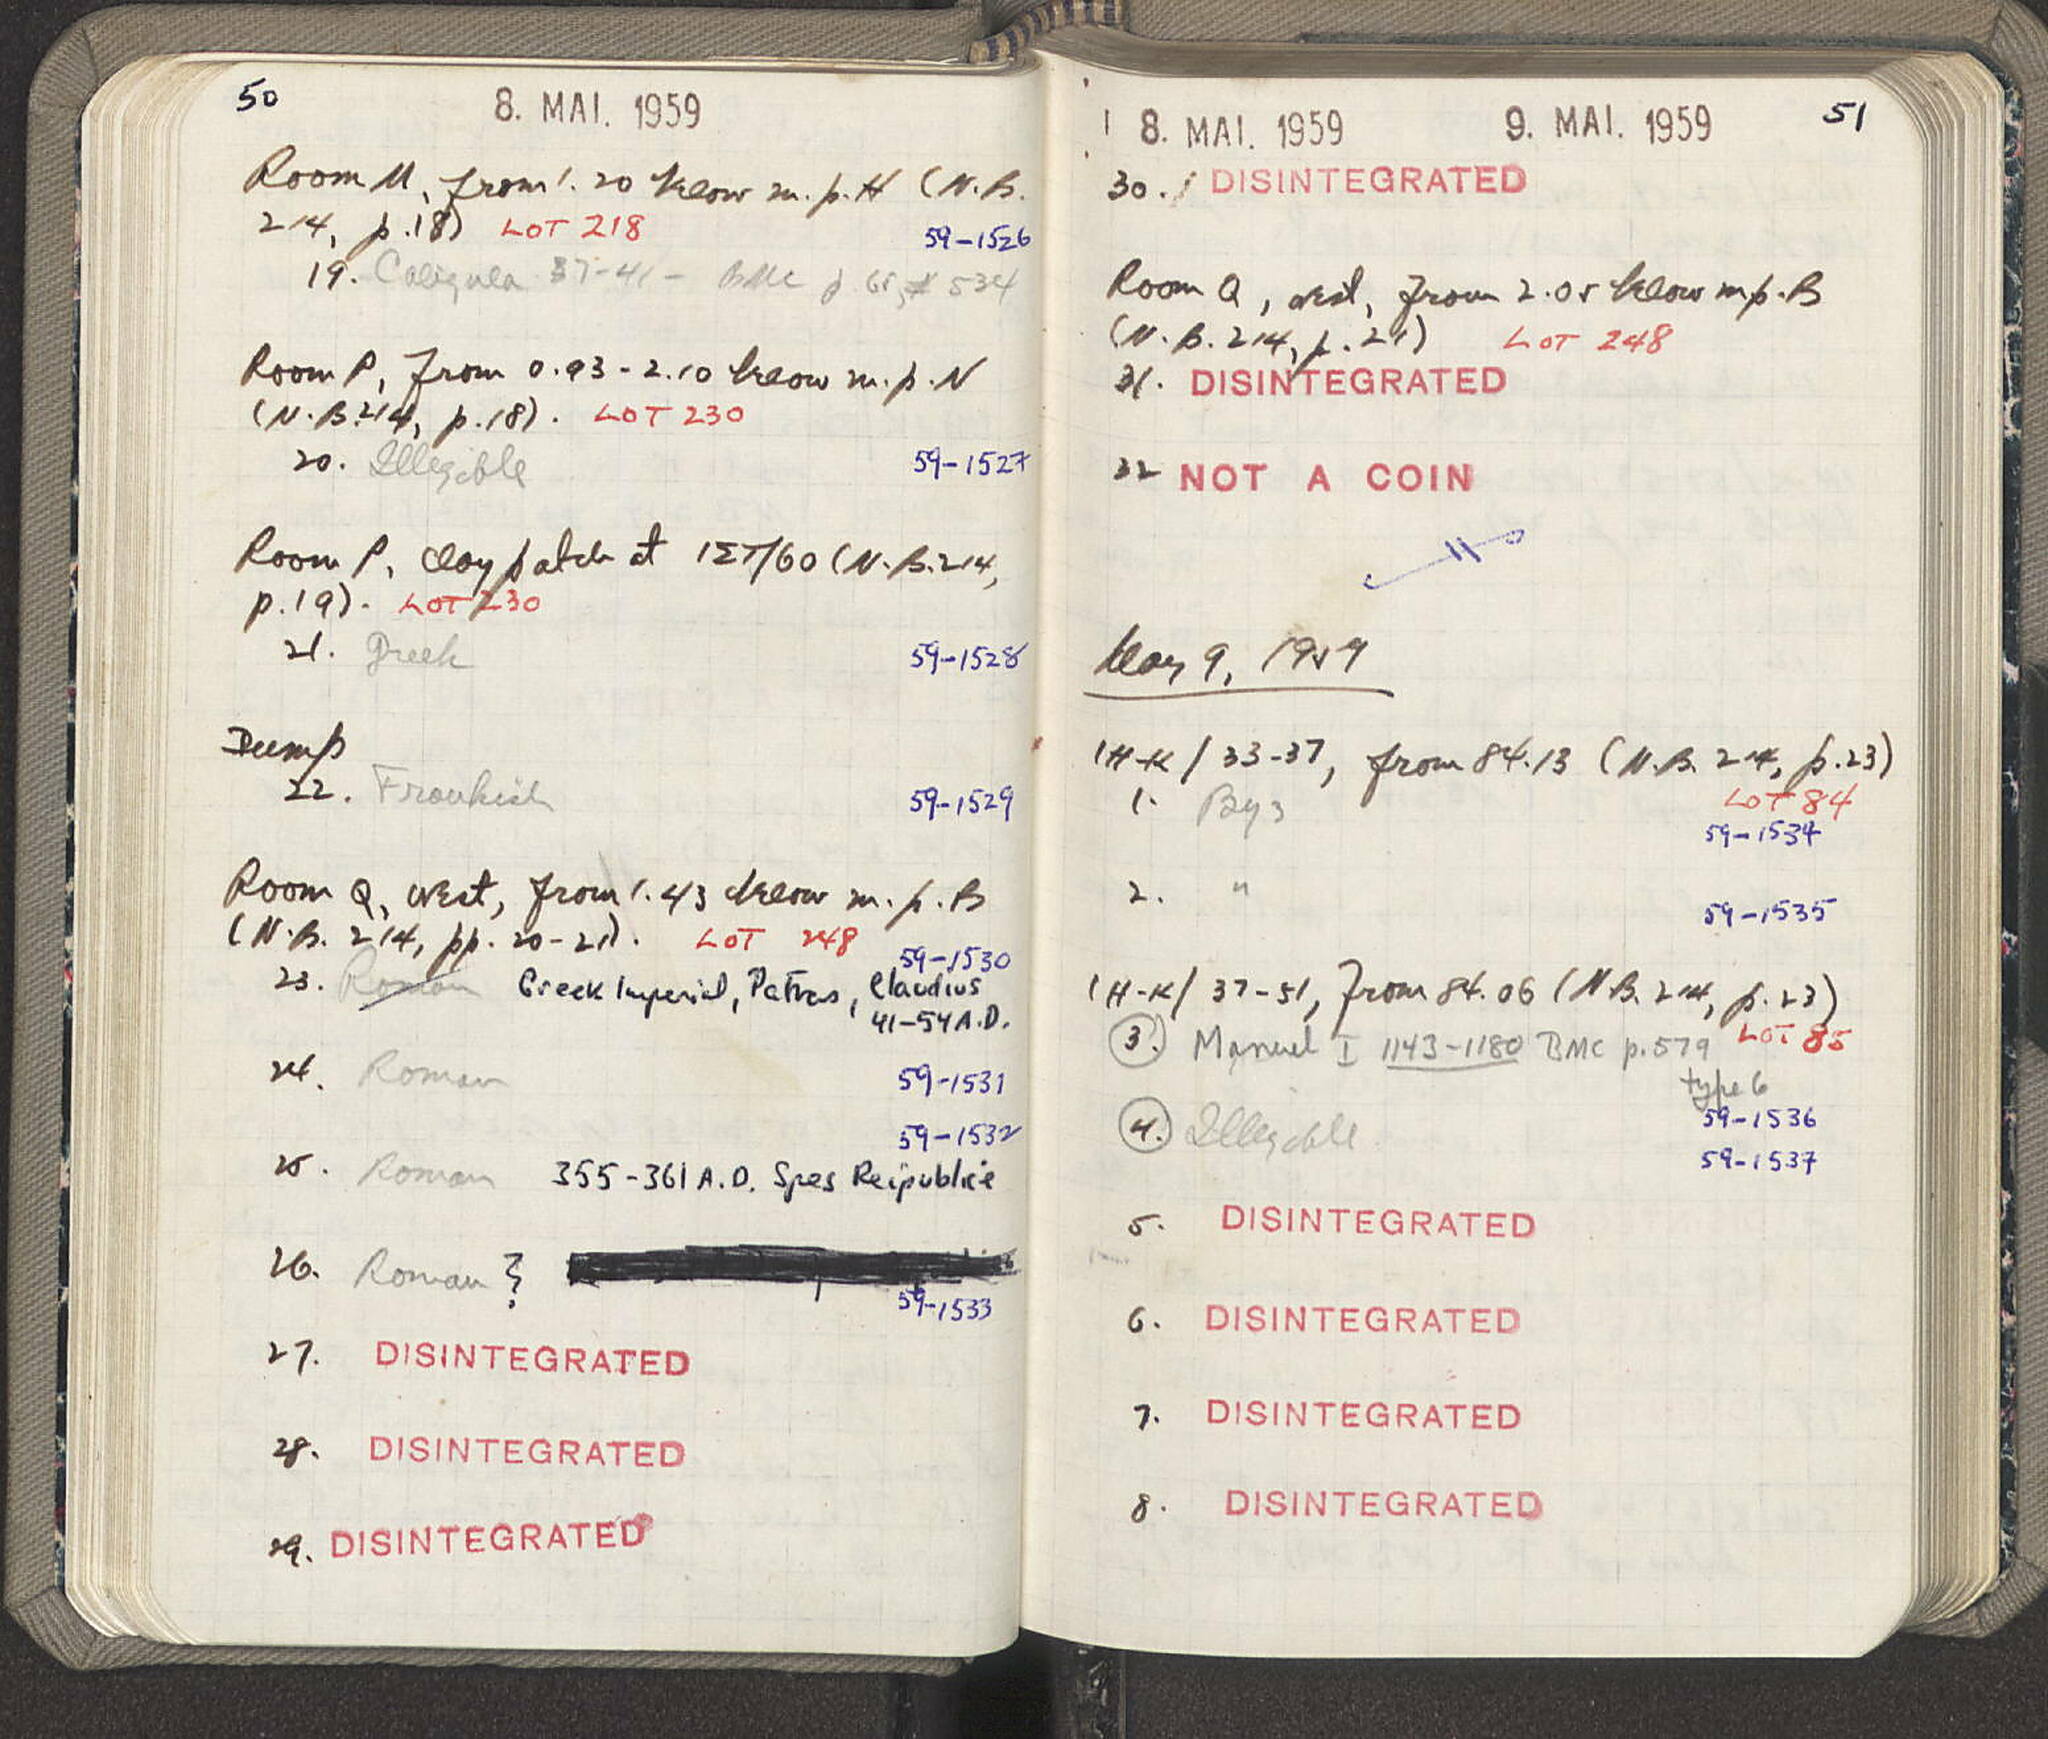 50
8. MAI. 1959
Room M, from 1.20 below m.p. H (N.B.
214, p.18) LOT 218
59-1526
19. Caligula 37-41 - BMC p 65, # 534
Room P, from 0.93-2.10 below m.p. N
(N.B. 214, p.18). LOT 230
20. Illegible 59-1527
Room P, clay patch at ΙΣΤ/60 (N.B. 214,
p.19). LOT 230
21. Greek 59-1528
Dump
22. Frankish 59-1529
Room Q, west, from 1.43 below m.p. B
(N.B. 214, pp. 20-21). LOT 248
59-1530
23. Roman Greek Imperial, Patras, Claudius
41-54 A.D.
24. Roman 59-1531
59-1532
25. Roman 355-361 A.D. Spes Reipublice
26. Roman ?
59-1533
27. DISINTEGRATED
28. DISINTEGRATED
29. DISINTEGRATED
8. MAI. 1959 9. MAI. 1959 51
30. DISINTEGRATED
Room Q, west, from 2.05 below m.p. B
(N.B. 214, p. 21) LOT 248
31. DISINTEGRATED
32 NOT A COIN
May 9, 1959
1H-K/33-37, from 84.13 (N.B. 214, p.23)
LOT 84
1. Byz
59-1534
2. "
59-1535
1H-K/37-51, from 84.06 (N.B. 214, p.23)
LOT 85
3. Manuel I 1143-1180 BMC p.579
type 6
59-1536
4. Illegible
59-1537
5. DISINTEGRATED
6. DISINTEGRATED
7. DISINTEGRATED
8. DISINTEGRATED